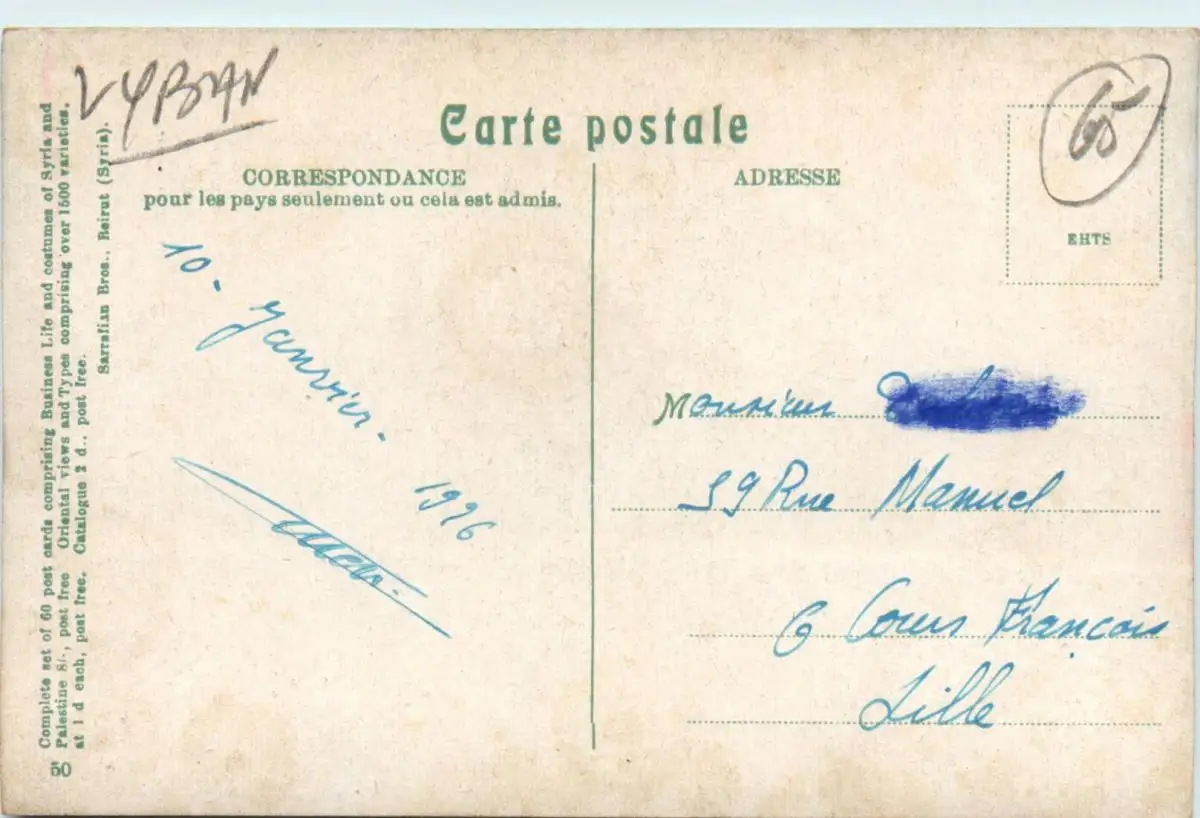 Carte postale
CORRESPONDANCE
pour les pays seulement ou cela est admis.
10 - Janvier - 1996
ADRESSE
65
EHTS
Monsieur
59 Rue Manuel
6 Cours François
Lille
Complete set of 60 post cards comprising Business Life and costumes of Syria and
Palestine 8/-, post free Oriental views and Types comprising over 1500 varieties.
at 1 d each, post free. Catalogue 2 d., post free.
Sarrafian Bros., Beirut (Syria).
50